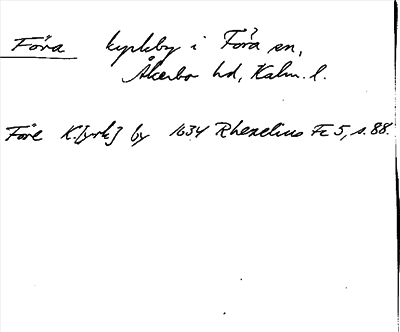 Föra kyrkby i Föra sn,
Åkerbo hd, Kalm. l.
Före K[yrk] by 1634 Rhezelius Fc 5, s. 88.